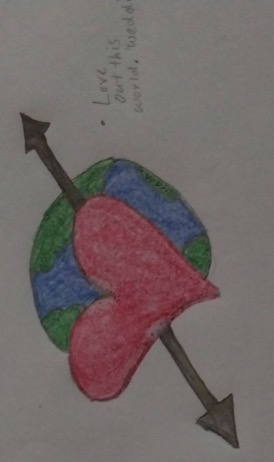 • Love
out this
world. Weddi